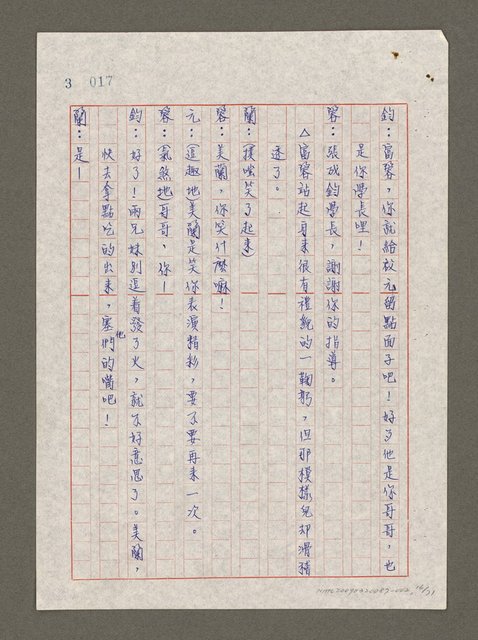 3 017
鈞：富蓉，你就給啟元留點面子吧！好歹他是你哥哥，也
是你學長哩！
蓉：張成鈞學長，謝謝你的指導。
△富蓉站起身來很有禮貌的一鞠躬，但那模樣兒却滑稽
透了。
蘭：（撲嗤笑了起來）
蓉：美蘭，你笑什麼嘛！
元：（逗趣地）美蘭是笑你表演精彩，要不要再來一次。
蓉：（氣煞地）哥哥，你—
鈞：好了！兩兄妹別逗着發了火，就不好意思了。美蘭，
快去拿點吃的出來，塞他們的嘴吧！
蘭：是—
16/21